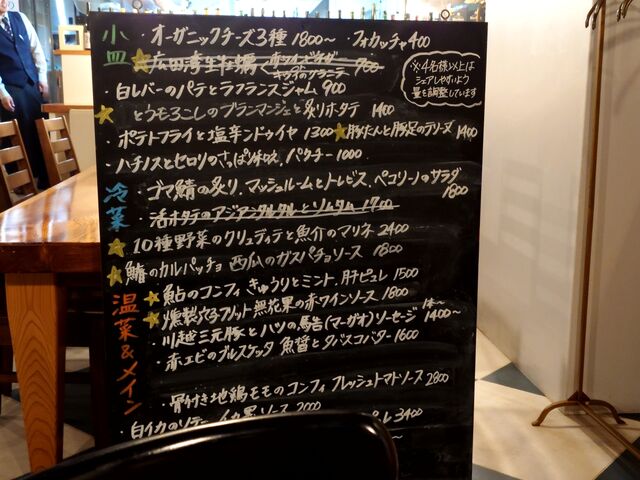 小皿
・オーガニックチーズ3種 1800〜 ・フォカッチャ 400
広田湾産牡蠣 700
※4名様以上は
シェアしやすいよう
量を調整しています
・白レバーのパテとラフランスジャム 900
とうもろこしのブランマンジェと炙りホタテ 1400
・ポテトフライと塩辛ンドゥイヤ 1300 豚たんと豚足のテリーヌ 1400
・ハチノスとセロリのさっぱり和え、パクチー 1000
冷菜
・ゴマ鯖の炙り、マッシュルームとトレビス、ペコリーノのサラダ 1800
・活ホタテのアジアンタルタルとソムタム 1700
10種野菜のクリュディテと魚介のマリネ 2400
鰆のカルパッチョ 西瓜のガスパチョソース 1800
温菜&メイン
鮎のコンフィ きゅうりとミント、肝ピュレ 1500
燻製穴子フリット 無花果の赤ワインソース 1800
・川越三元豚とハツの馬告(マーガオ)ソーセージ 1本〜 1400〜
・赤エビのブルスケッタ 魚醤とタバスコバター 1600
・骨付き地鶏モモのコンフィ フレッシュトマトソース 2800
・白イカのソテー イカ墨ソース 2000
レ 3400